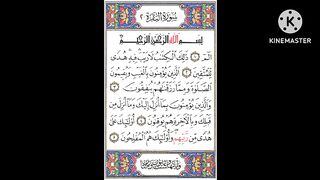 سُورَةُ الْبَقَرَةِ ٢
بِسْمِ اللهِ الرَّحْمٰنِ الرَّحِيْمِ
الٓمّٓ ۝ ذٰلِكَ الْكِتٰبُ لَا رَيْبَ فِيْهِ هُدًى
لِّلْمُتَّقِيْنَ ۝ الَّذِيْنَ يُؤْمِنُوْنَ بِالْغَيْبِ وَيُقِيْمُوْنَ
الصَّلٰوةَ وَمِمَّا رَزَقْنٰهُمْ يُنْفِقُوْنَ ۝
وَالَّذِيْنَ يُؤْمِنُوْنَ بِمَآ اُنْزِلَ اِلَيْكَ وَمَآ اُنْزِلَ مِنْ
قَبْلِكَ وَبِالْاٰخِرَةِ هُمْ يُوْقِنُوْنَ ۝ اُولٰٓئِكَ عَلٰى
هُدًى مِّنْ رَّبِّهِمْ وَاُولٰٓئِكَ هُمُ الْمُفْلِحُوْنَ ۝
KINEMASTER